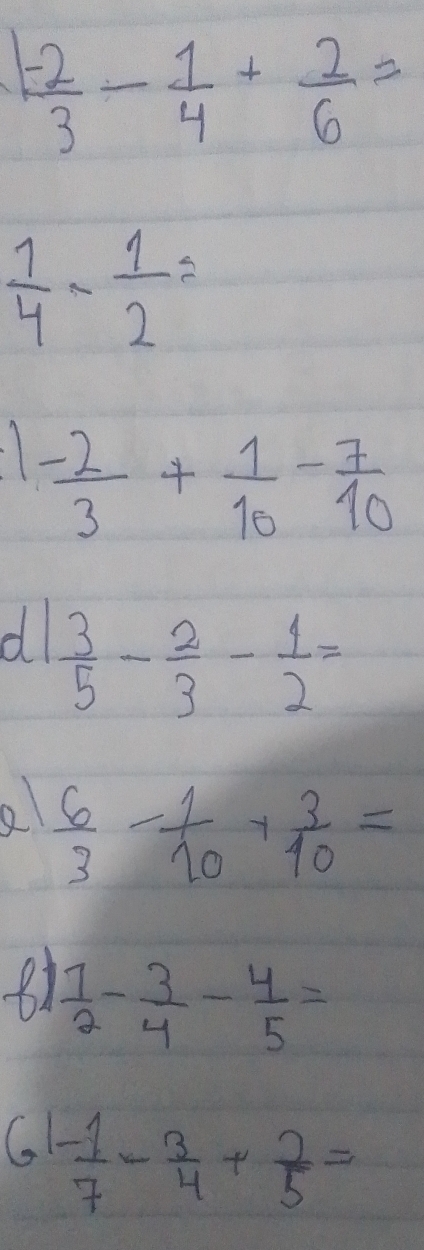 -2/3 - 1/4 + 2/6 =
1/4 - 1/2 =
-2/3 + 1/10 - 7/10
d) 3/5 - 2/3 - 1/2 =
e) 6/3 - 1/10 + 3/10 =
f) 1/2 - 3/4 - 4/5 =
G) -1/7 - 3/4 + 2/5 =